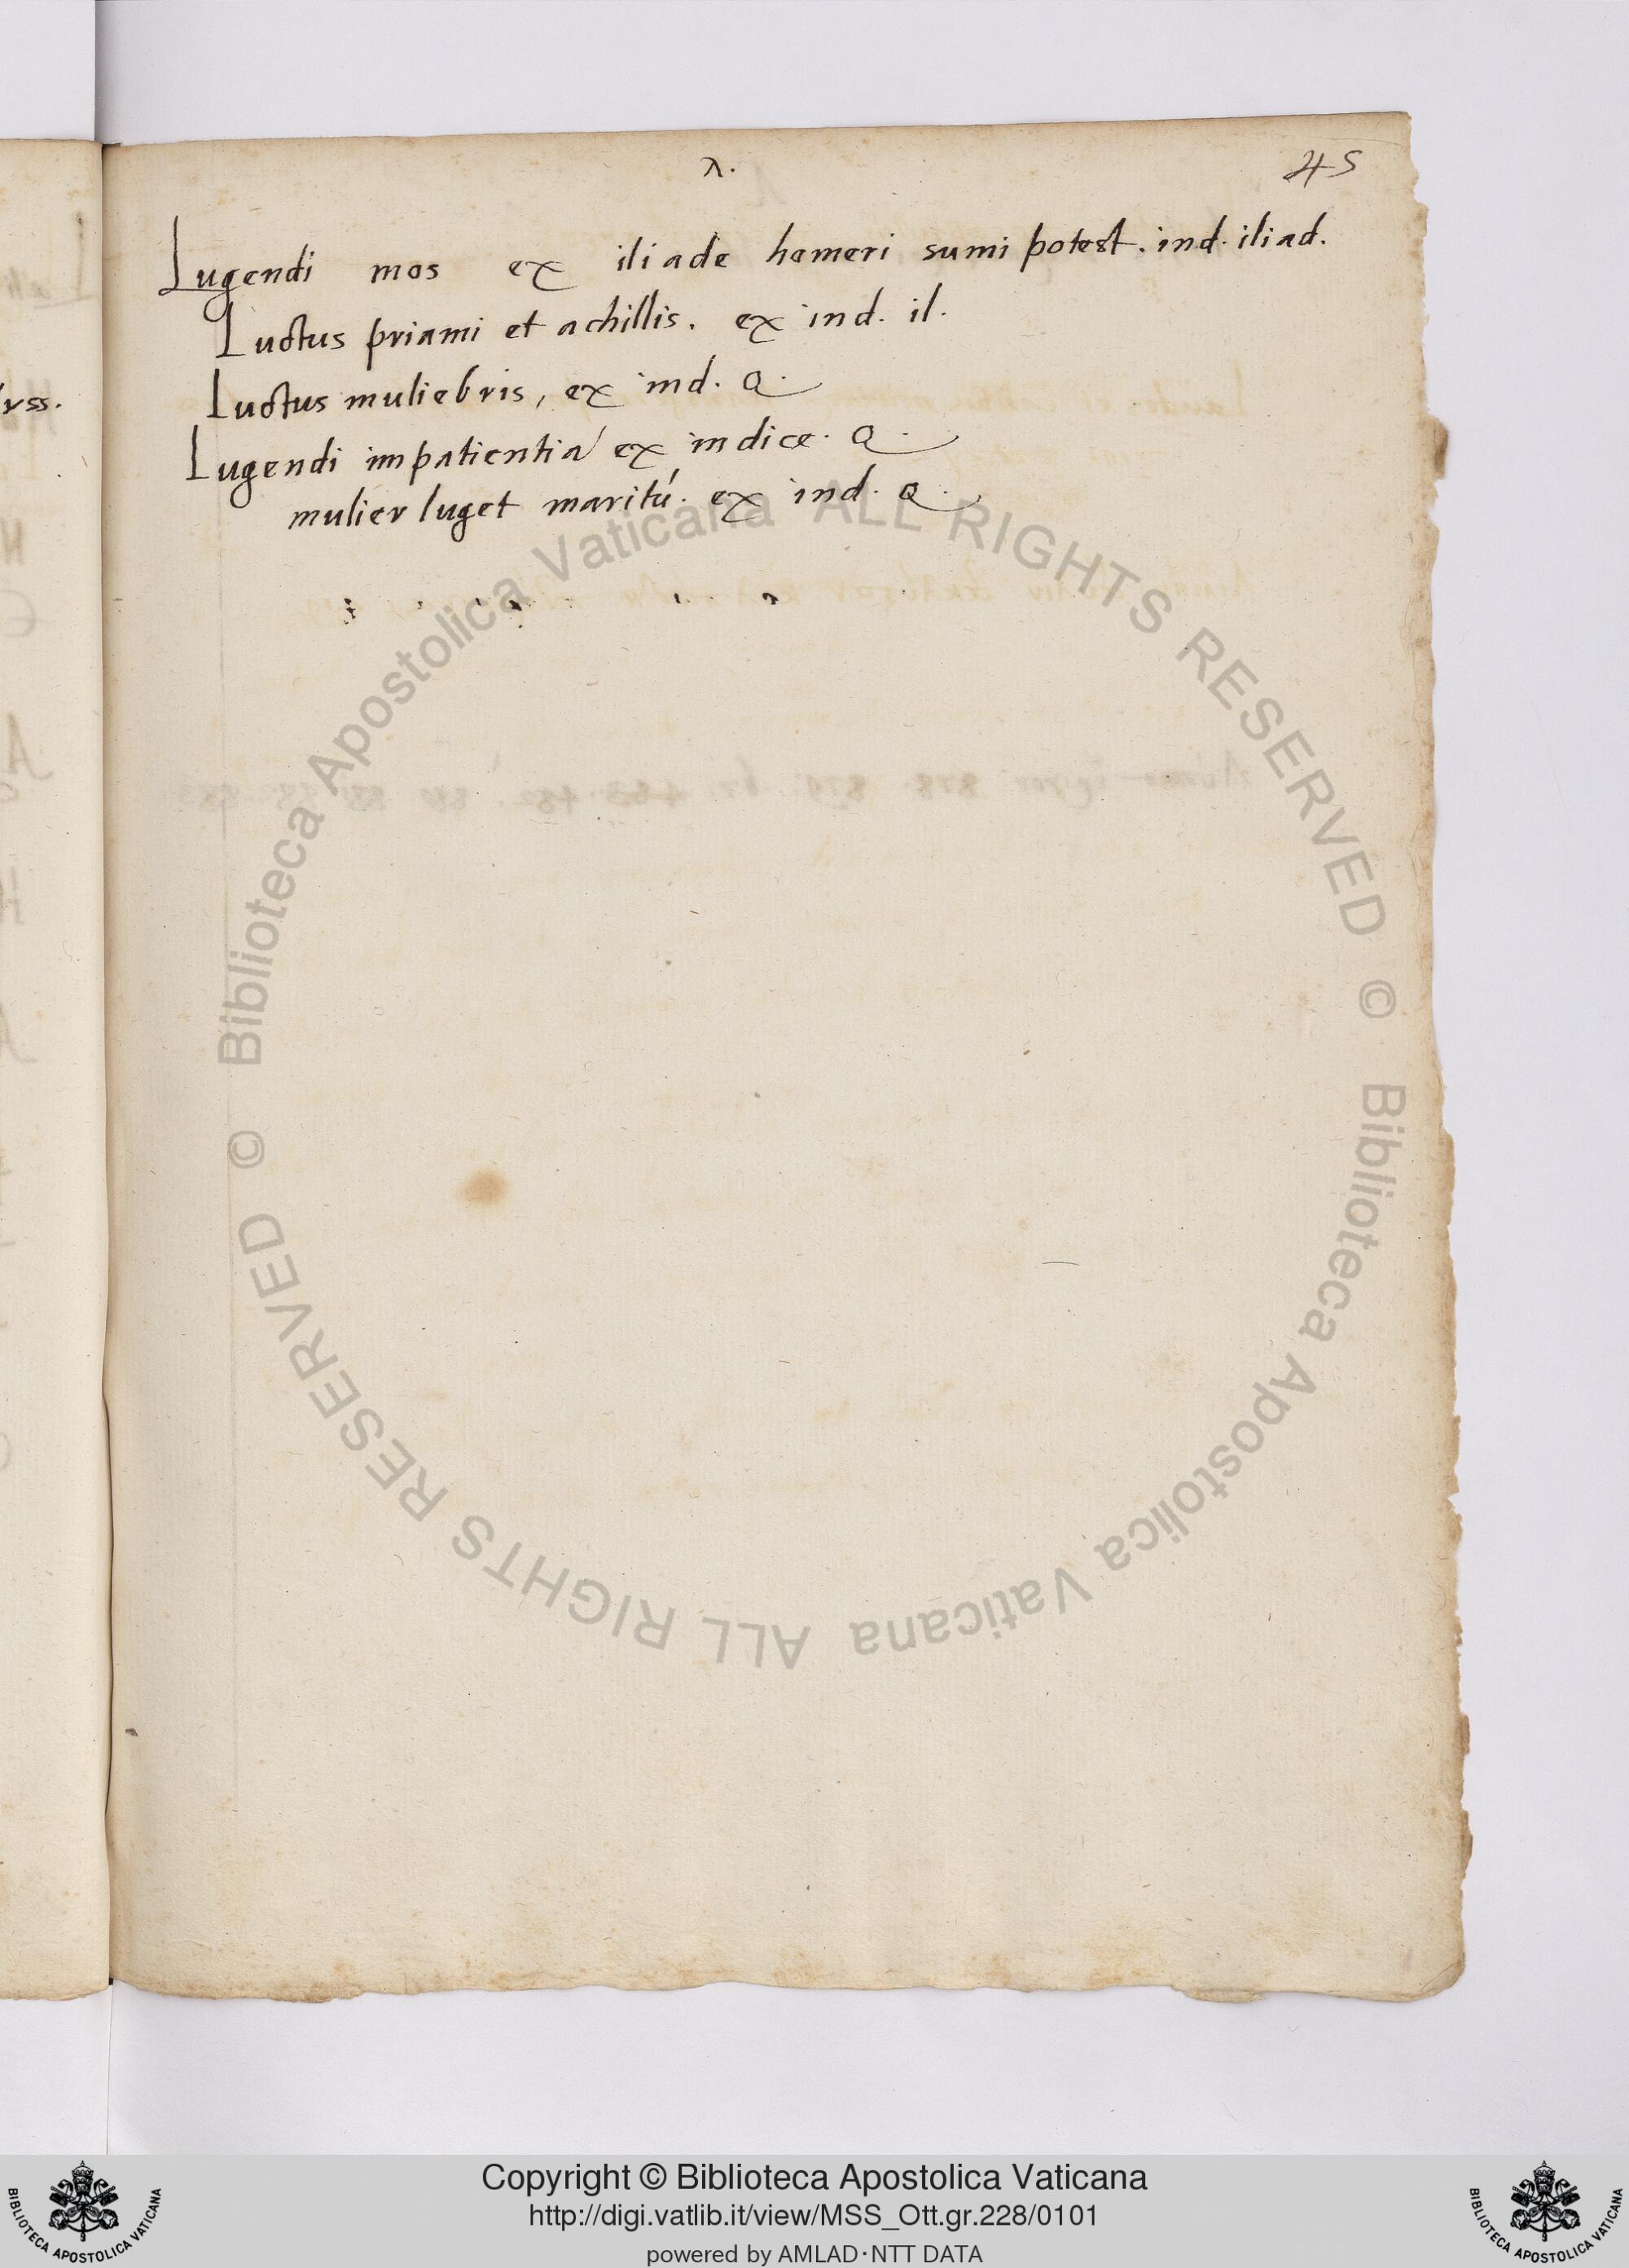 λ.
45
Lugendi mos ex iliade homeri sumi potest. ind. iliad.
Luctus priami et achillis. ex ind. il.
Luctus muliebris, ex ind. Q.
Lugendi impatientia ex indice. Q.
mulier luget maritú. ex ind. Q.
yss.
© Biblioteca Apostolica Vaticana ALL RIGHTS RESERVED © Biblioteca Apostolica Vaticana ALL RIGHTS RESERVED
Copyright © Biblioteca Apostolica Vaticana
http://digi.vatlib.it/view/MSS_Ott.gr.228/0101
powered by AMLAD·NTT DATA
BIBLIOTECA APOSTOLICA VATICANA
BIBLIOTECA APOSTOLICA VATICANA